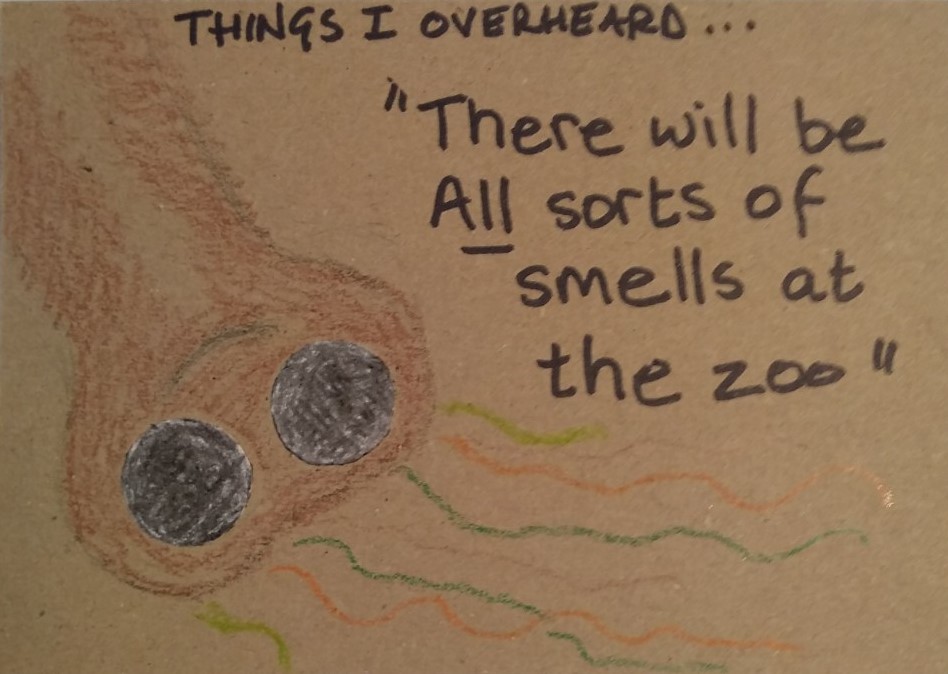 THINGS I OVERHEARD...
"There will be
All sorts of
smells at
the zoo"